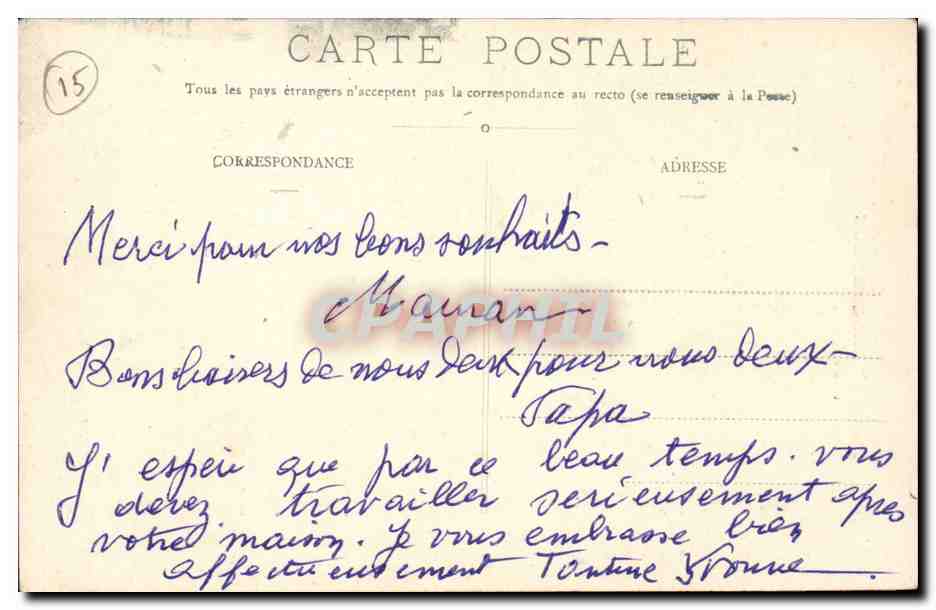 15
CARTE POSTALE
Tous les pays étrangers n'acceptent pas la correspondance au recto (se renseigner à la Poste)
CORRESPONDANCE
ADRESSE
Merci pour vos bons souhaits -
Maman -
CPAPHIL
Bons baisers de nous deux pour vous deux -
Papa
J'espère que par ce beau temps. vous
devez travailler serieusement après
votre maison. Je vous embrasse bien
affectueusement Tantine Yvonne